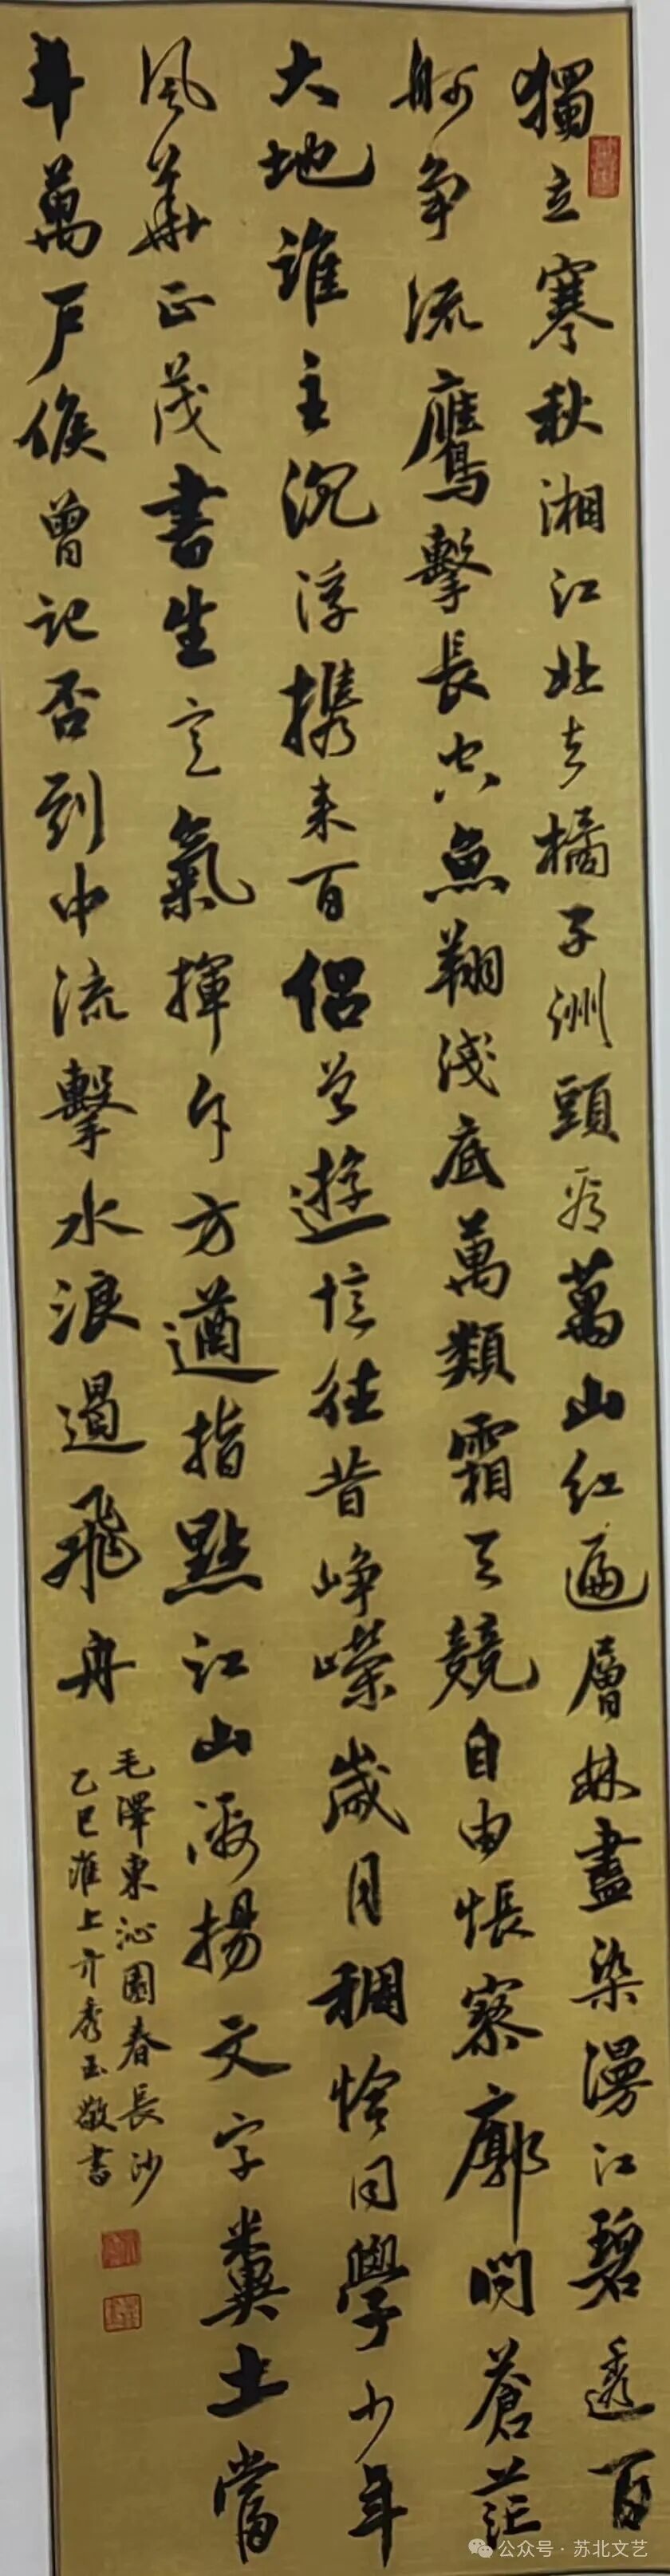 獨立寒秋湘江北去橘子洲頭看萬山紅遍層林盡染漫江碧透百
舸争流鷹擊長空魚翔淺底萬類霜天競自由悵寥廓問蒼茫
大地誰主沉浮携来百侣曾遊憶往昔峥嶸歲月稠恰同學少年
風華正茂書生意氣揮斥方遒指點江山激揚文字糞土當
年萬户侯曾記否到中流擊水浪遏飛舟
毛澤東沁園春長沙
乙巳淮上秀玉敬書
公众号·苏北文艺